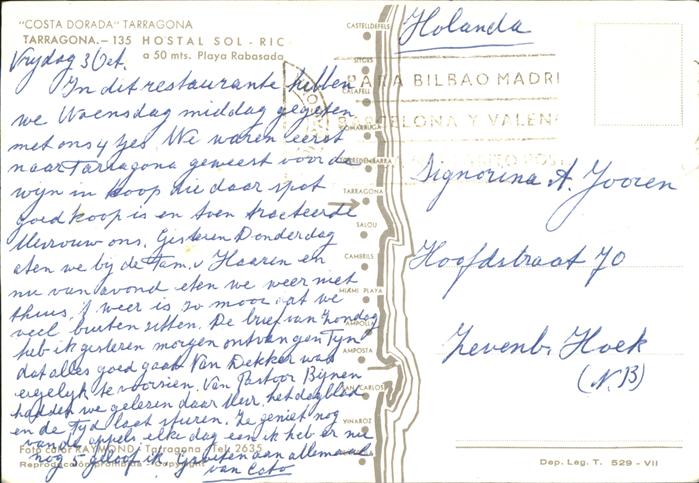 "COSTA DORADA" TARRAGONA
TARRAGONA.— 135 HOSTAL SOL - RIC
a 50 mts. Playa Rabasada
Vrijdag 3 Oct.
In dit restaurante hebben
we Woensdag middag gegeten
met ons 4 yes. We waren eerst
naar Tarragona geweest voor de
wijn in koop die daar spot
goedkoop is en toen tracteerde
Mevrouw ons. Gisteren Donderdag
aten we bij de Fam. v Haaren en
nu van avond eten we weer met
thuis. 't weer is zo mooi dat we
veel buiten zitten. De brief van Zondag
heb ik gisteren morgen ontvangen Fijn
dat alles goed gaat. Van Dekker was
eigelyk te voorsien. Van Pastoor Bijnen
hadden we gelezen daar Mevr. het dagblad
en de Tyd laat sturen. Ze geniet nog
van de appels elke dag een ik heb er nu
nog 5 geloof ik. Groeten aan allemaal
van Cato
Foto color RAYMOND - Tarragona - Tel. 2635
Reproducción prohibida - Copyright
CASTELLDEFELS
SITGES
CALAFELL
COMARRUGA
TORREDEMBARRA
TARRAGONA
SALOU
CAMBRILS
MIAMI PLAYA
AMPOLLA
AMPOSTA
SAN CARLOS
VINAROZ
PARA BILBAO MADRI
BARCELONA Y VALEN
Holanda
Signorina A. Jooren
Hoofdstraat 70
Zevenb. Hoek
(N.B)
Dep. Leg. T. 529 - VII